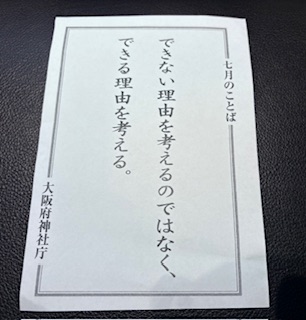 七月のことば
できない理由を考えるのではなく、
できる理由を考える。
大阪府神社庁